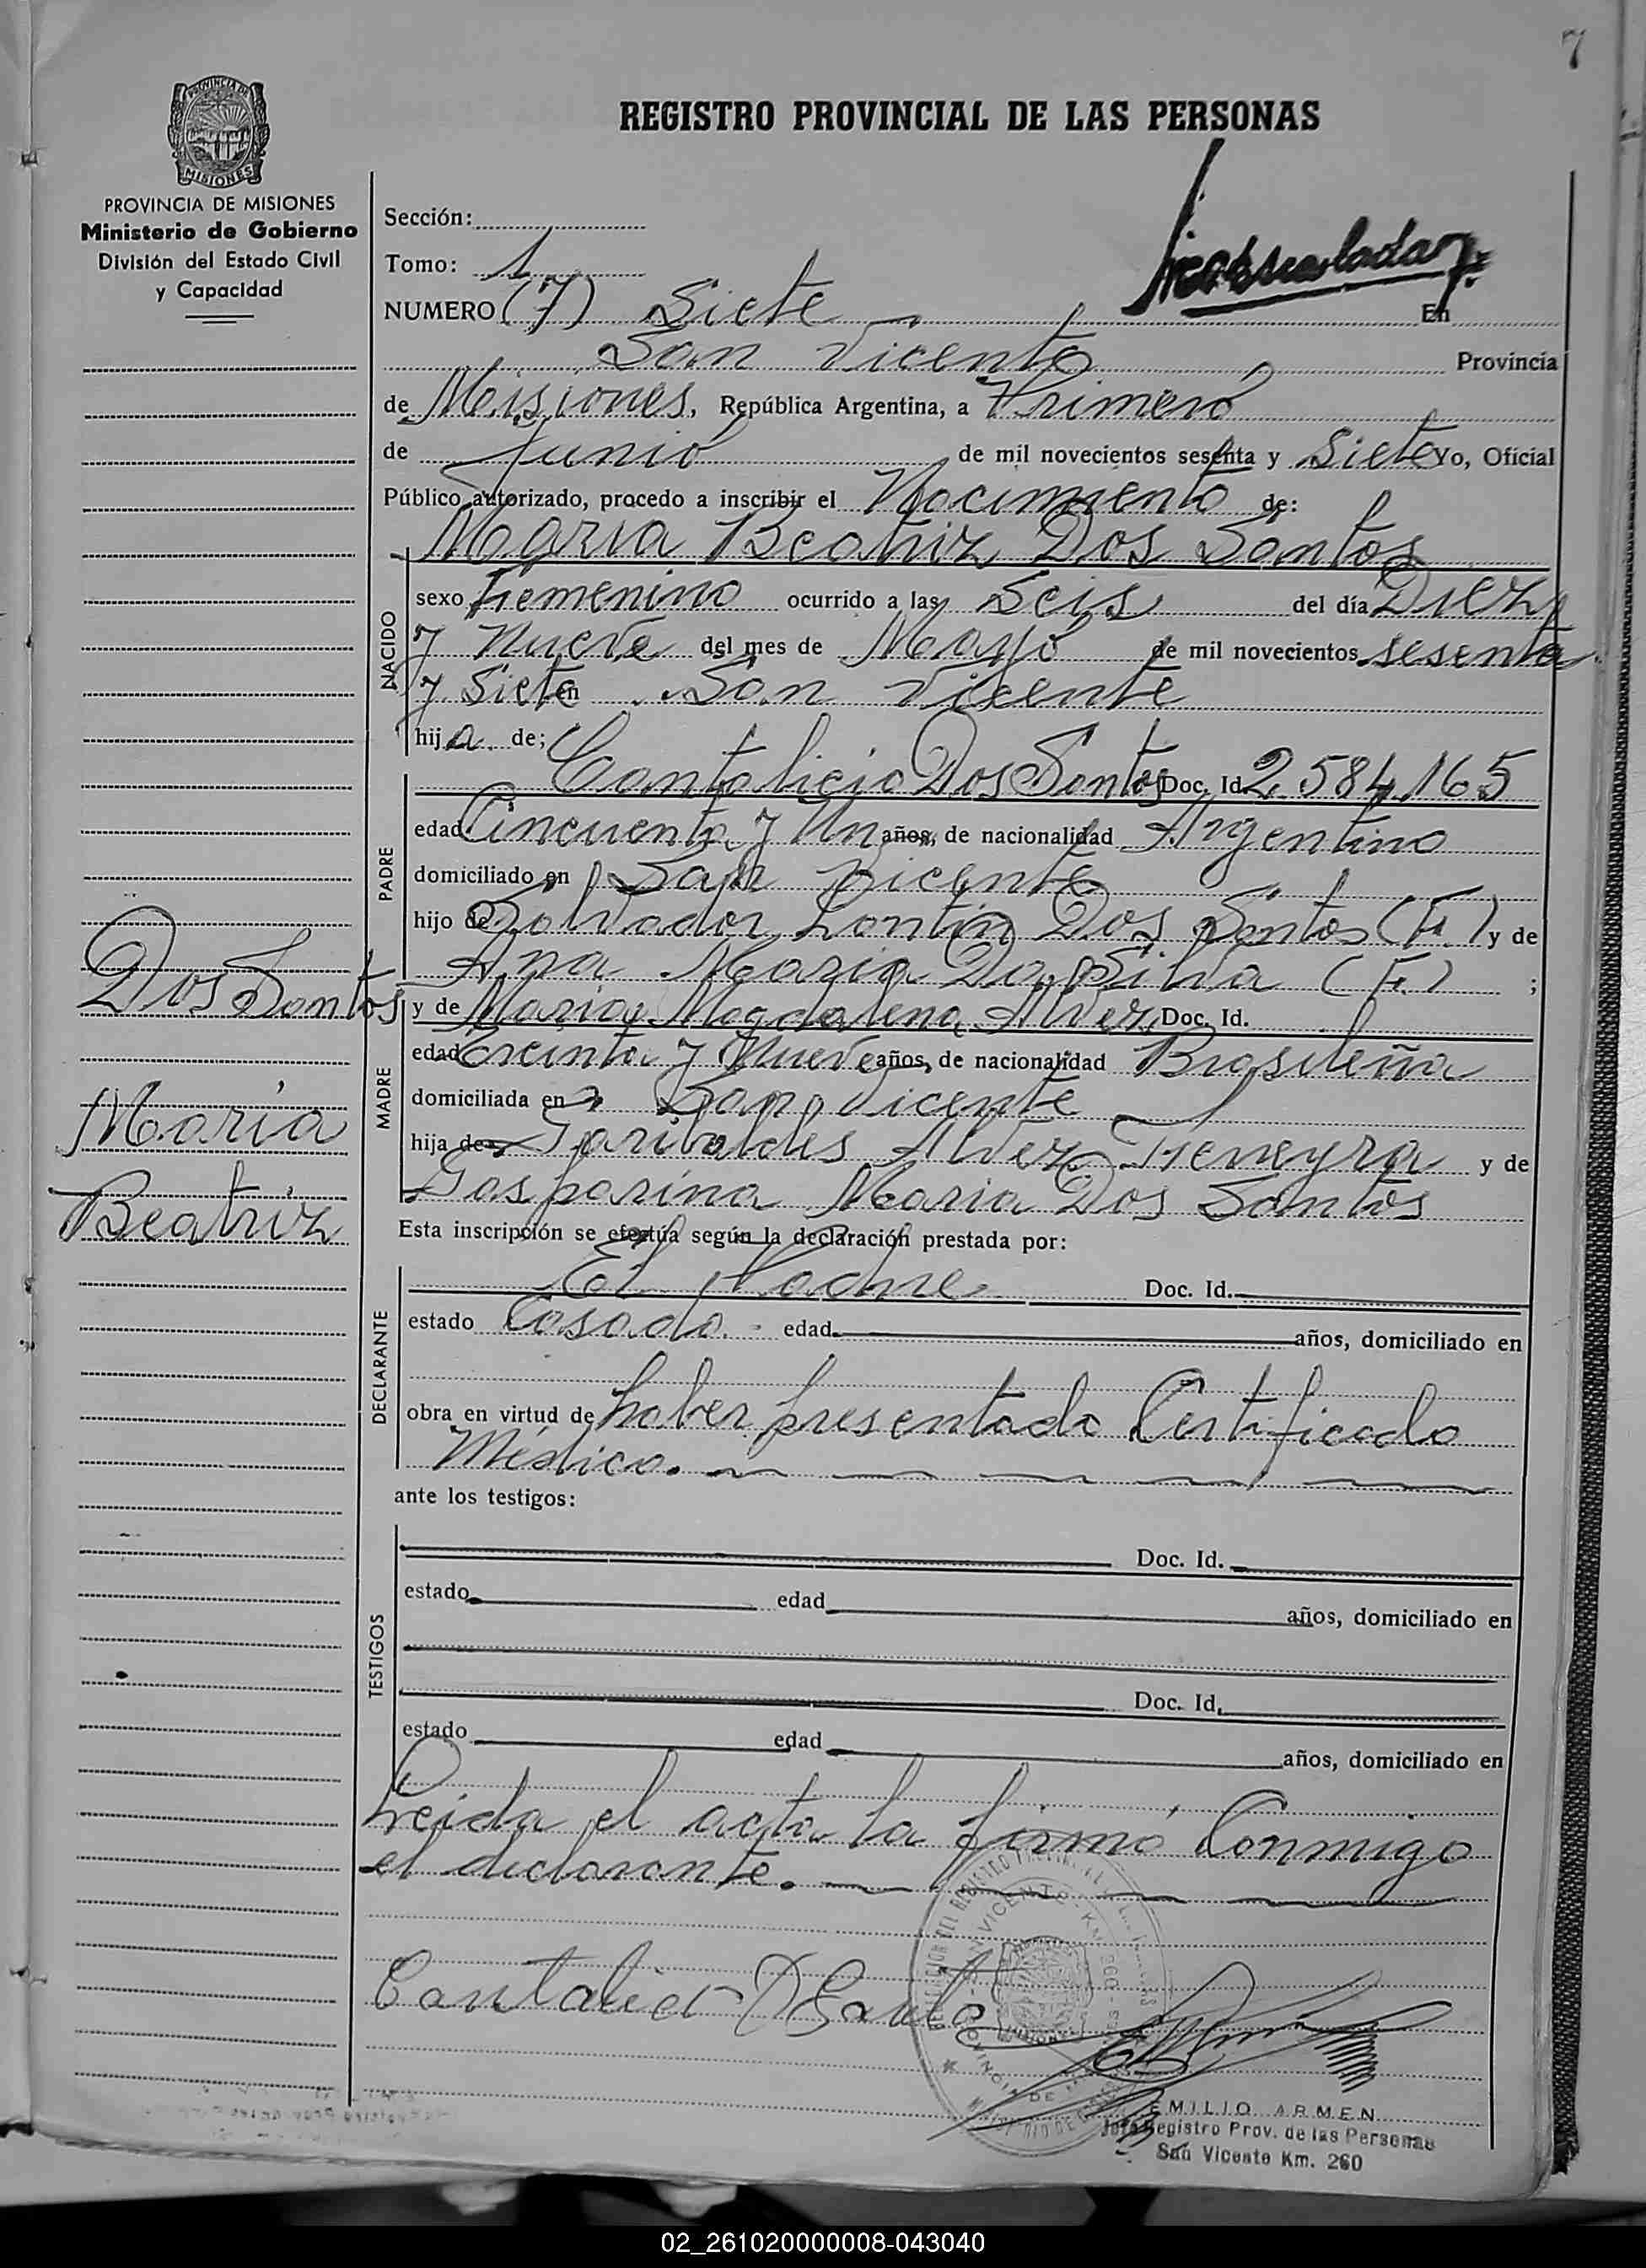 7
REGISTRO PROVINCIAL DE LAS PERSONAS
PROVINCIA DE
MISIONES
PROVINCIA DE MISIONES
Ministerio de Gobierno
División del Estado Civil
y Capacidad
Sección:
Tomo: 1
NUMERO (7) Siete En
San Vicente Provincia
de Misiones, República Argentina, a Primero
de Junio de mil novecientos sesenta y Siete Yo, Oficial
Público autorizado, procedo a inscribir el Nacimiento de:
Maria Beatriz Dos Santos
NACIDO
sexo Femenino ocurrido a las Seis del día Diez
y Nueve del mes de Mayo de mil novecientos sesenta
y Siete en San Vicente
hija de;
PADRE
Cantalicio Dos Santos Doc. Id. 2.584.165
edad Cincuenta y Un años, de nacionalidad Argentino
domiciliado en San Vicente
hijo de Salvador Dos Santos (F.) y de
Ana Maria Da Silva (F.) ;
Dos Santos
Maria
Beatriz
MADRE
y de Maria Magdalena Alvez Doc. Id.
edad Treinta y Nueve años, de nacionalidad Brasileña
domiciliada en San Vicente
hija de Garibaldes Alvez y de
Gasparina Maria Dos Santos
Esta inscripción se efectúa según la declaración prestada por:
DECLARANTE
El Padre Doc. Id.
estado Casado - edad años, domiciliado en
obra en virtud de haber presentado Certificado
Médico.
ante los testigos:
TESTIGOS
Doc. Id.
estado edad años, domiciliado en
Doc. Id.
estado edad años, domiciliado en
Leida el acta la firmó Conmigo
el declarante.
Cantalicio D Santo
EMILIO ARMEN
Jefe Registro Prov. de las Personas
San Vicente Km. 260
02_261020000008-043040